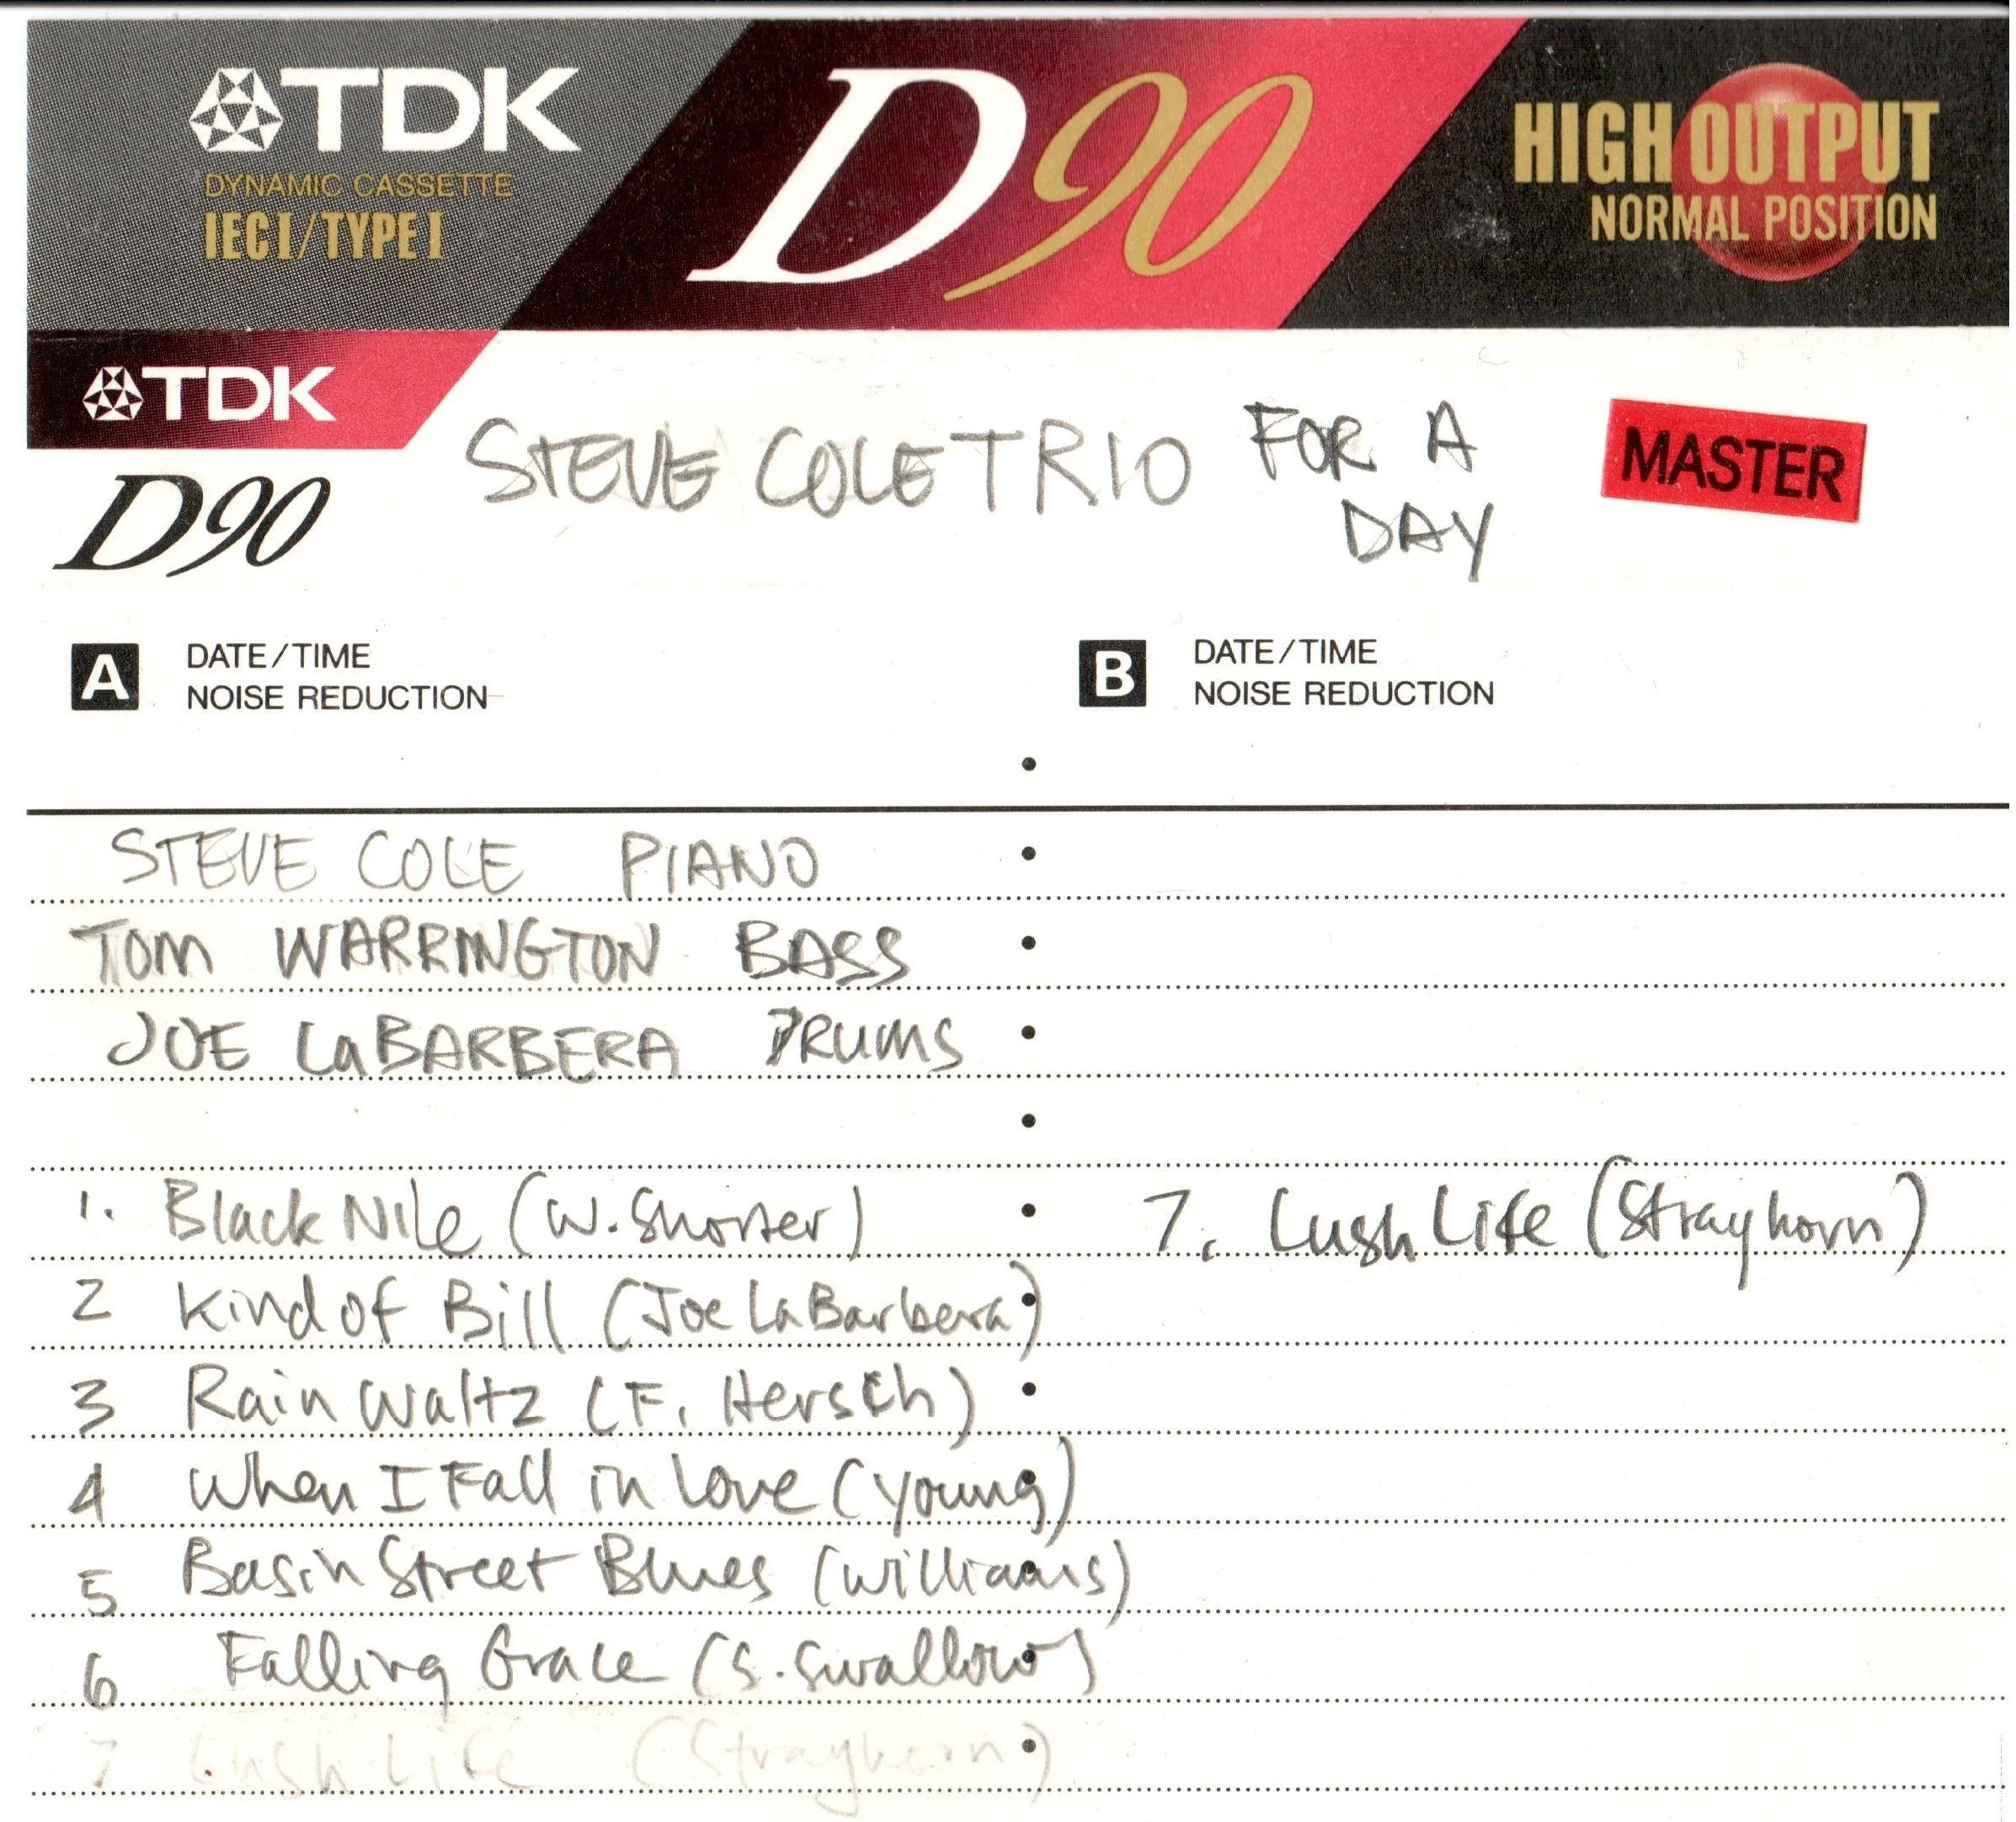 TDK
DYNAMIC CASSETTE
IEC I/TYPE I
D90
HIGH OUTPUT
NORMAL POSITION
TDK
D90
STEVE COLE TRIO FOR A
DAY
MASTER
A DATE/TIME
NOISE REDUCTION
B DATE/TIME
NOISE REDUCTION
STEVE COLE PIANO
TOM WARRINGTON BASS
JOE LaBARBERA DRUMS
1. Black Nile (W. Shorter)
7. Lush Life (Strayhorn)
2 Kind of Bill (Joe LaBarbera)
3 Rain Waltz (F. Hersch)
4 When I Fall in Love (Young)
5 Basin Street Blues (Williams)
6 Falling Grace (S. Swallow)
7 Lush Life (Strayhorn)